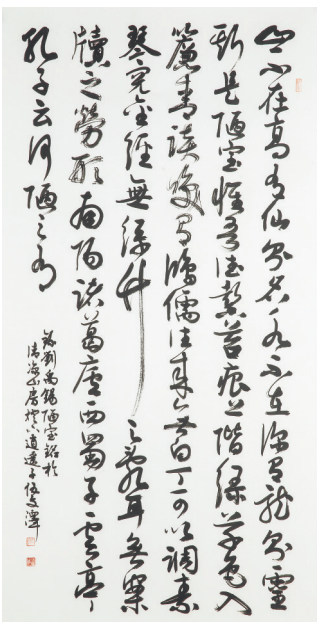 山不在高有仙則名水不在深有龍則靈
斯是陋室惟吾德馨苔痕上階綠草色入
簾青談笑有鴻儒往來無白丁可以調素
琴閱金經無絲竹之亂耳無案
牘之勞形南陽諸葛廬西蜀子雲亭
孔子云何陋之有
錄劉禹錫陋室銘於
山房